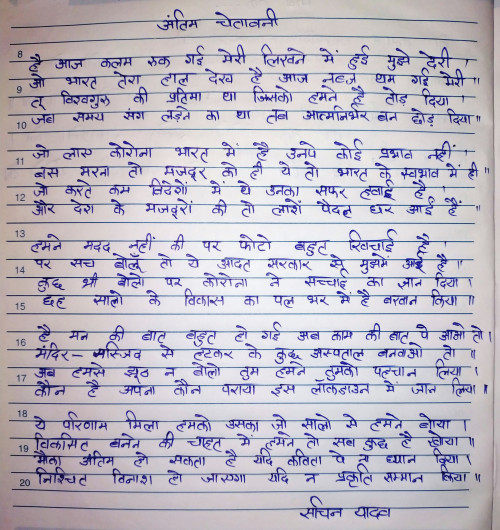 अंतिम चेतावनी
8
है आज कलम रुक गई मेरी लिखने में हुई मुझे देरी ।
ओ भारत तेरा हाल देख है आज नब्ज़ थम गई मेरी ॥
9
तू विश्वगुरु की प्रतिमा था जिसको हमने है तोड़ दिया ।
जब समय संग लड़ने का था तब आत्मनिर्भर बन छोड़ दिया ॥
10
11
जो लाए कोरोना भारत में है उनपे कोई प्रभाव नहीं ।
बस मरना तो मजदूर को ही ये तो भारत के स्वभाव में ही ॥
12
जो करते काम विदेशों में थे उनका सफर हवाई है ।
और देश के मजदूरों की तो लाशें पैदल घर आई हैं ॥
13
हमने मदद नहीं की पर फोटो बहुत खिंचाई है ।
पर सच बोलूँ तो ये आदत सरकार से मुझमें आई है ॥
14
कुछ भी बोलो पर कोरोना ने सच्चाई का ज्ञान दिया ।
छह सालों के विकास का पल भर में है बखान किया ॥
15
है मन की बात बहुत हो गई अब काम की बात पे आओ तो ।
16
मंदिर-मस्जिद से हटकर के कुछ अस्पताल बनवाओ तो ॥
17
अब हमसे झूठ न बोलो तुम हमने तुमको पहचान लिया ।
कौन है अपना कौन पराया इस लॉकडाउन में जान लिया ॥
18
ये परिणाम मिला हमको उसका जो सालों से हमने बोया ।
विकसित बनने की चाहत में हमने तो सब कुछ है खोया ॥
19
मौका अंतिम हो सकता है यदि कविता पे न ध्यान दिया ।
निश्चित विनाश हो जाएगा यदि न प्रकृति सम्मान किया ॥
20
सचिन यादव